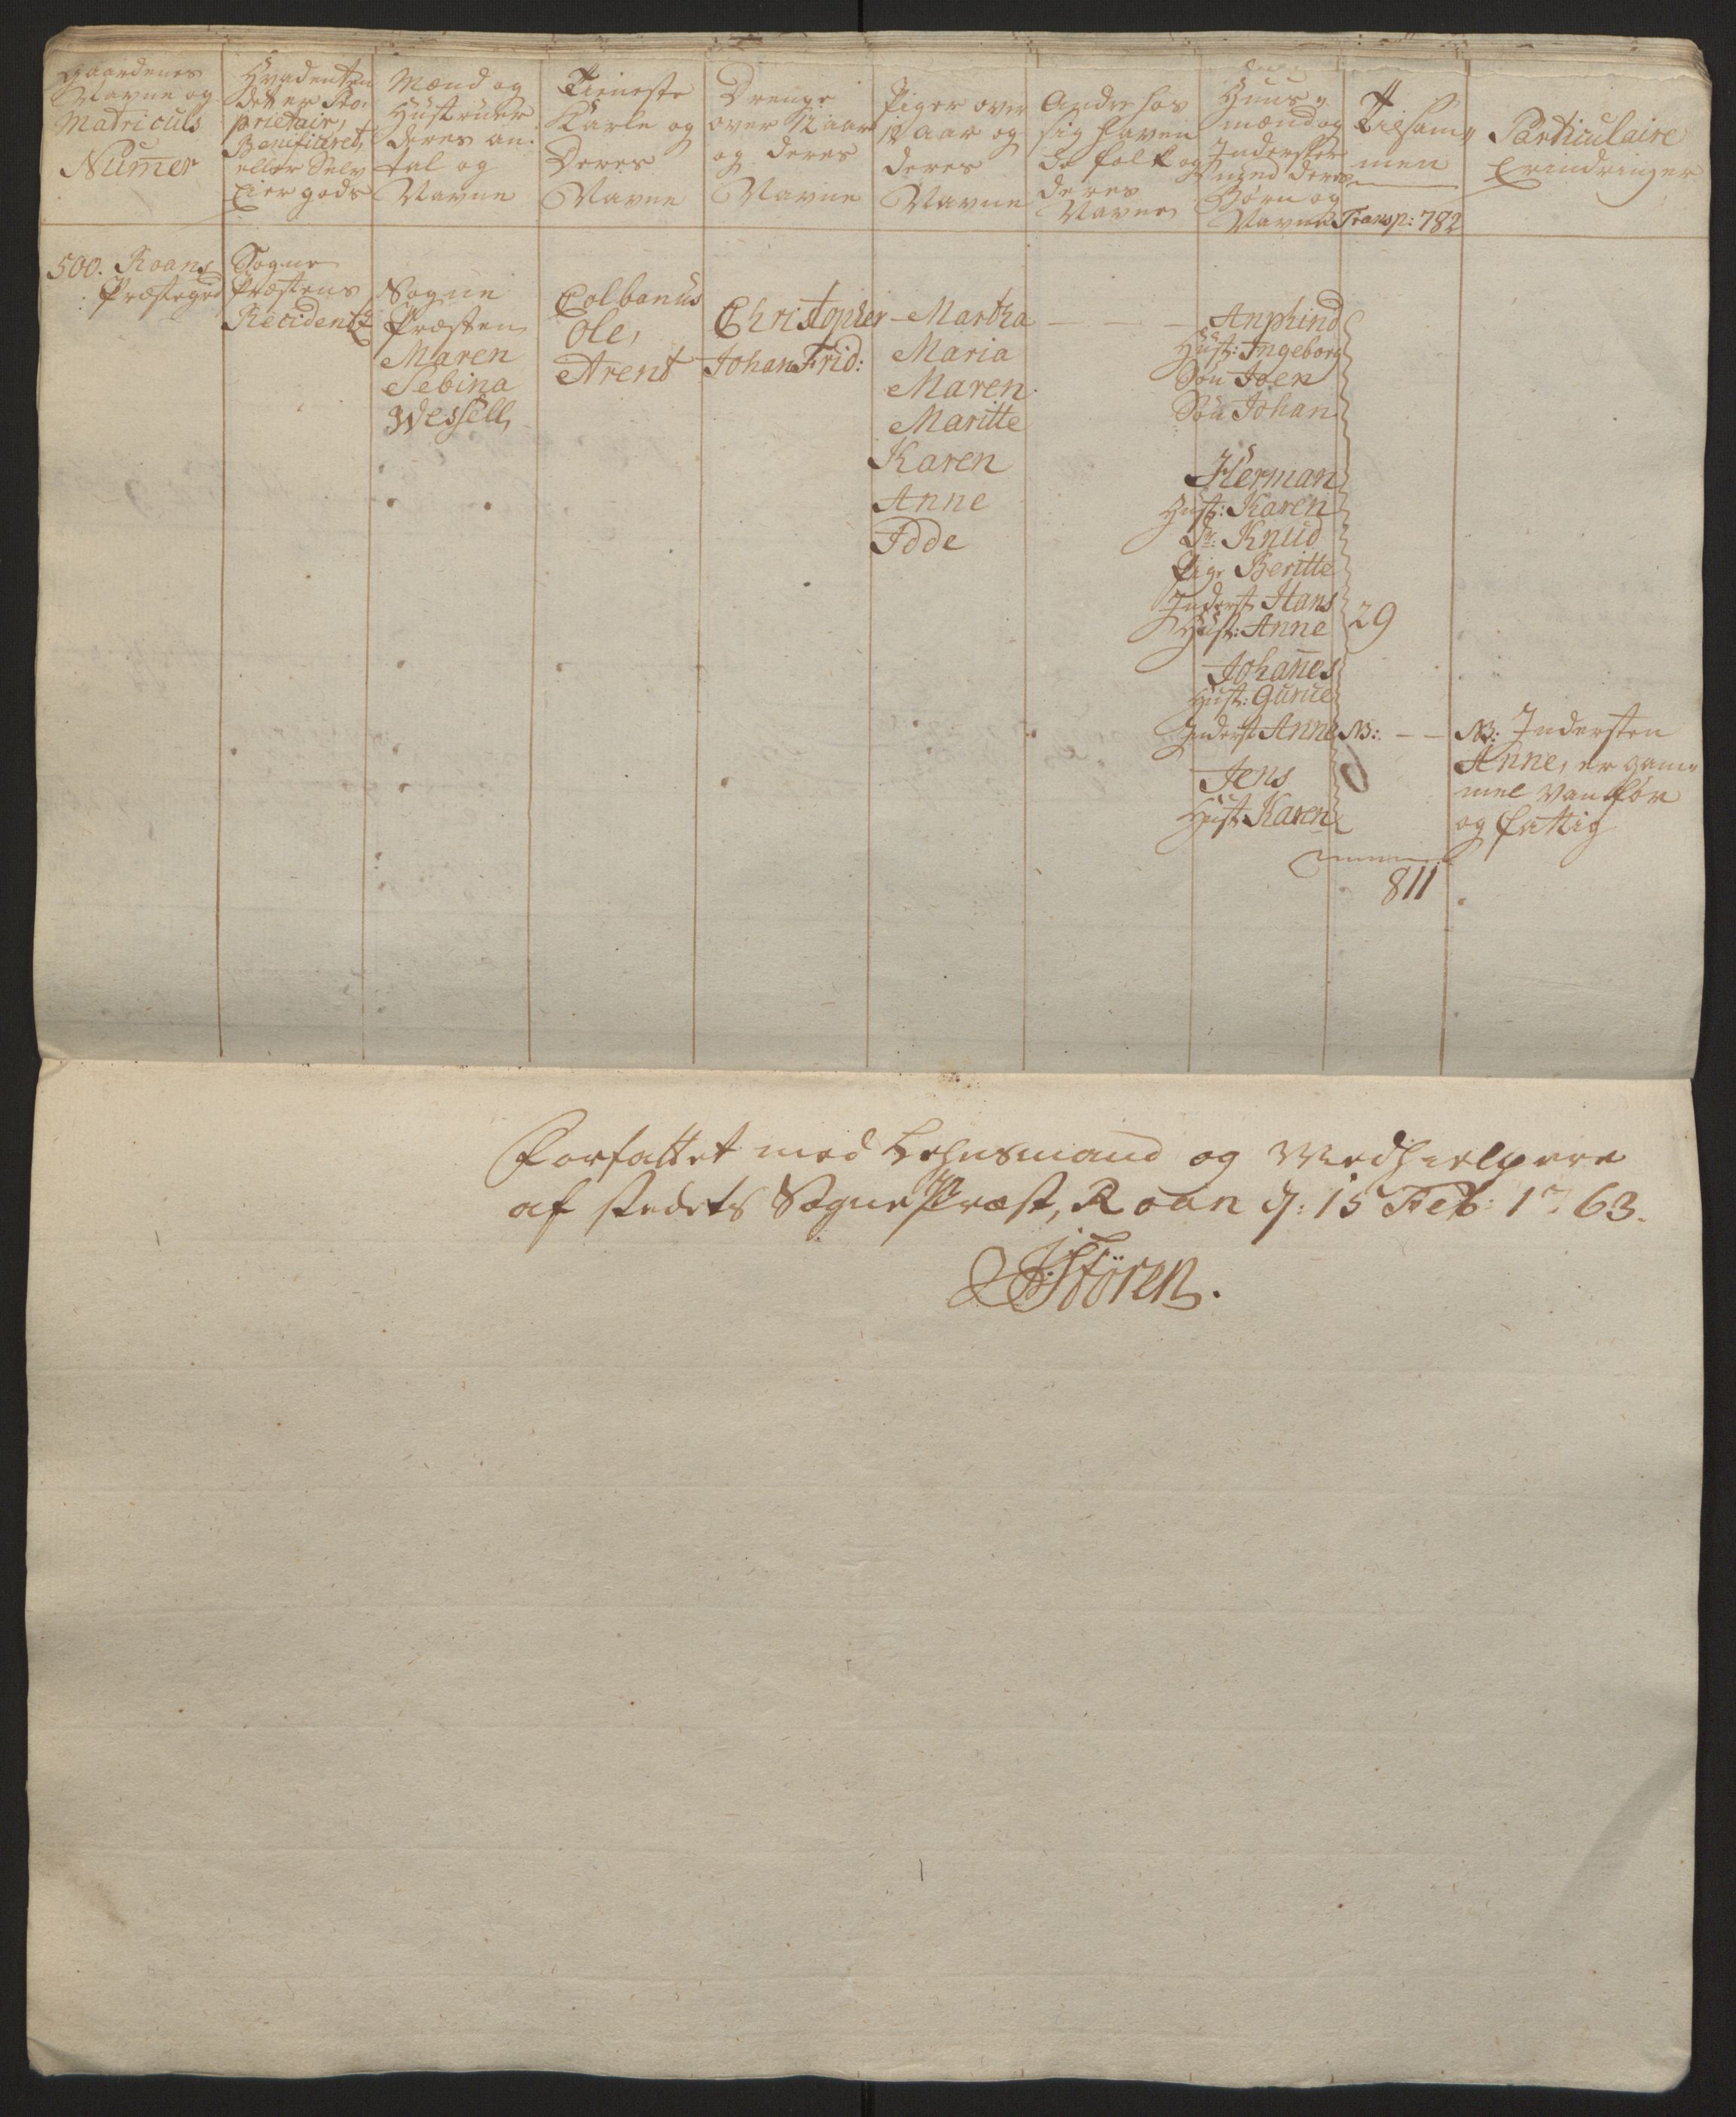 Gaardenes
Navne og
Matriculs
Numer
Hvadenten
det er Pro-
prietair,
Benificeret,
eller Selv
Eier gods
Mænd og
Hustruer
deres an-
tal og
Navne
Tieneste
Karle og
Deres
Navne
Drenge
over 12 aar
og deres
Navne
Piger over
12 aar og
deres
Navne
Andre hos
sig haven
de folk og
deres
Navne
Huus-
mænd og
Inderster
med deres
Børn og
Navne
Tilsam-
men
Transp: 782
Particulaire
Erindringer
500. Roans
Præstegrd
Sogne
Præstens
Recidentz
Sogne
Præsten
Maren
Sebina
Wessell
Colbanus
Ole,
Arent
Christopher
Johan Frid:
Martha
Maria
Maren
Maritte
Karen
Anne
Idde
Anphind
Hust: Ingeborg
Søn Joen
Søn Johan
Herman
Hust: Karen
Dr: Knud
Pige Beritte
Inderst Hans
Hust: Anne
Johanes
Hust: Gurue
Inderst Anne NB:
Jens
Hust Karen
29
811
NB: Indersten
Anne, er gam-
mel vanfør
og fattig
Forfattet med Lehnsmand og Medhielpere
af stedets Sogne Præst, Roan d: 15 Feb: 1763.
Stören.